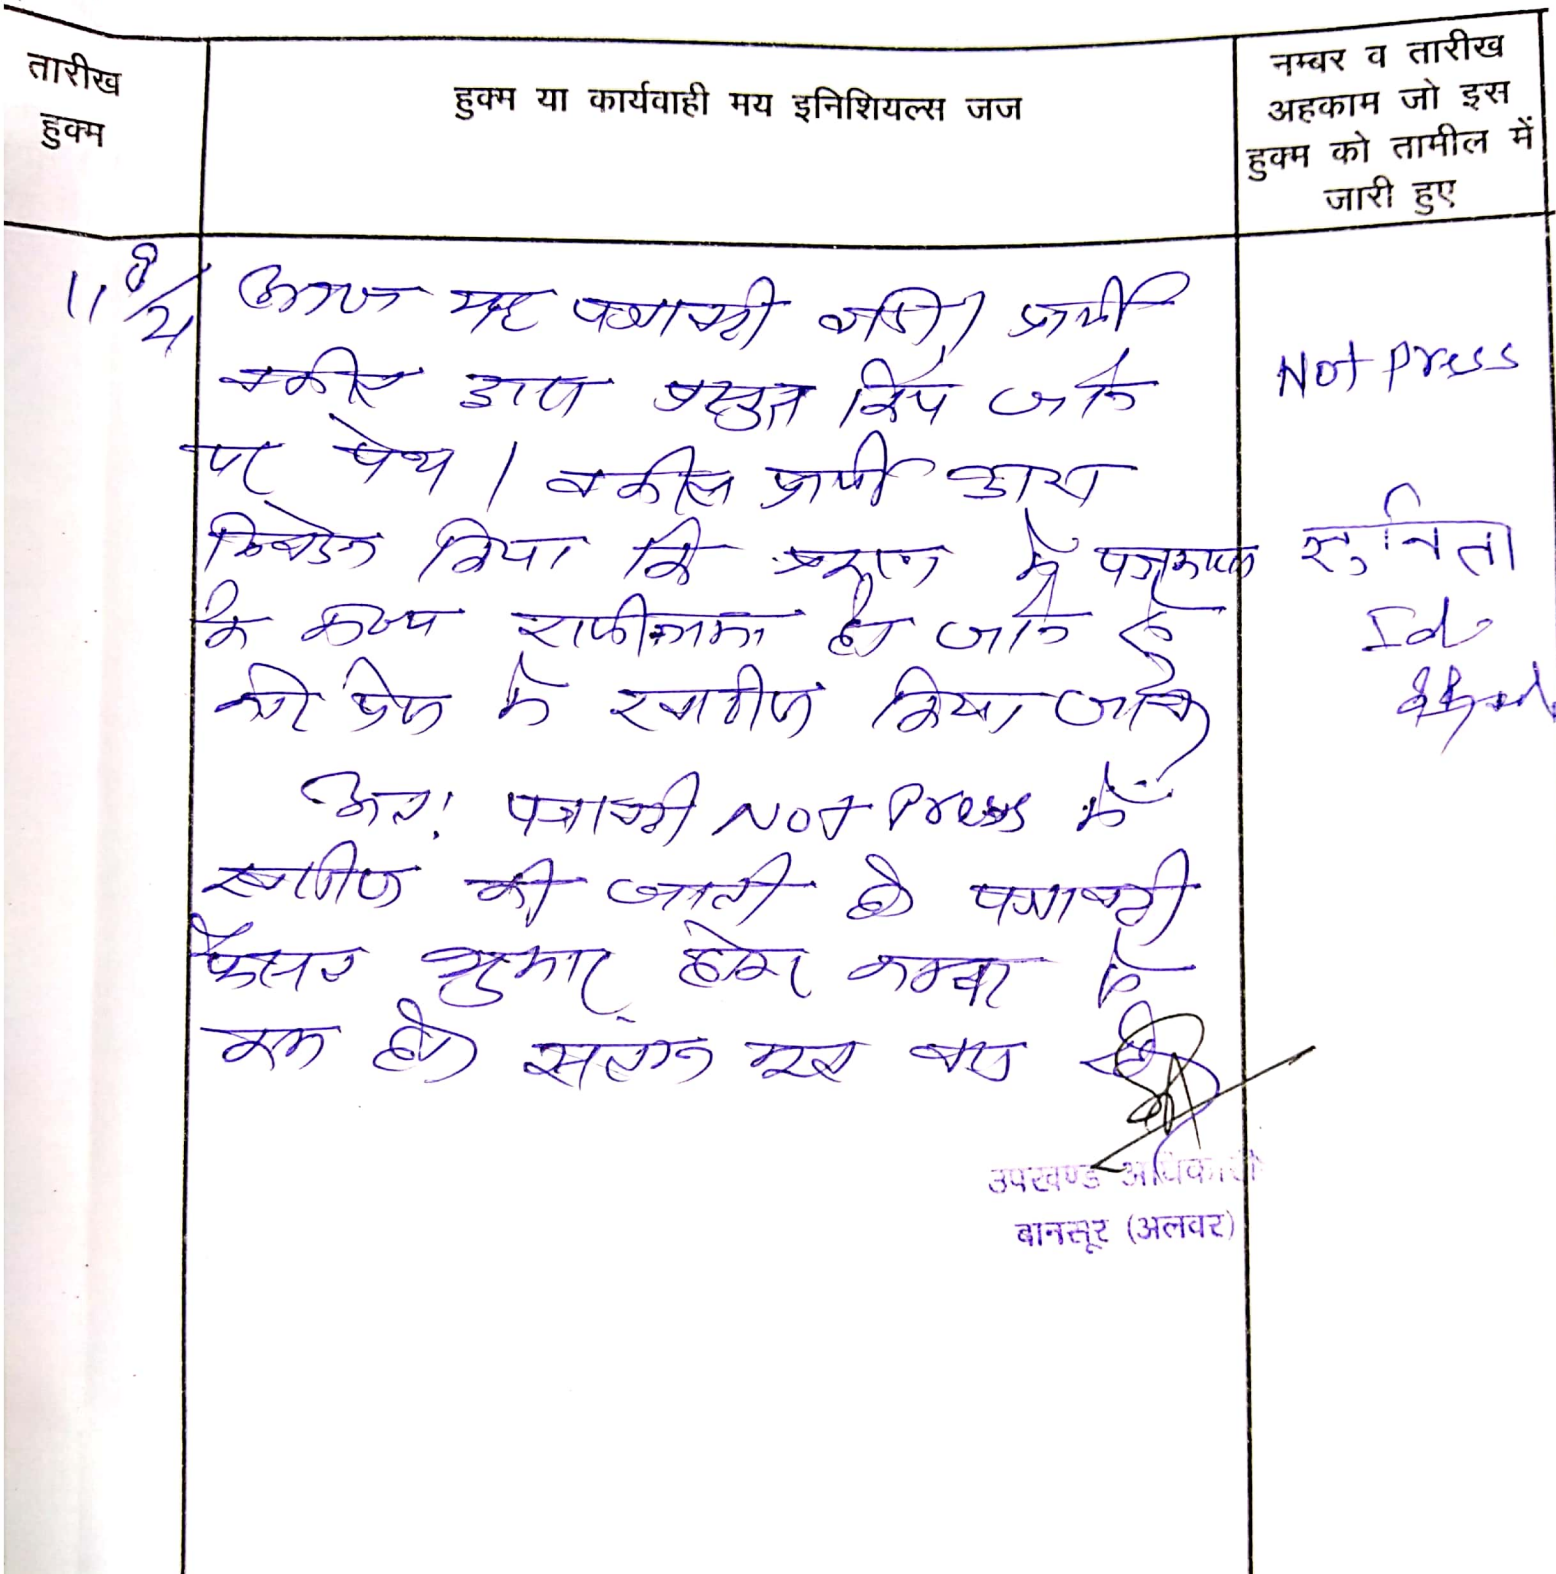 तारीख
हुक्म
हुक्म या कार्यवाही मय इनिशियल्स जज
नम्बर व तारीख
अहकाम जो इस
हुक्म को तामील में
जारी हुए
आज यह पत्रावली प्रार्थी
वकील द्वारा प्रस्तुत किये जाने
पर पेश । वकील प्रार्थी द्वारा
निवेदन किया कि प्रकरण में पक्षकारान
के मध्य राजीनामा हो जाने से
नोट प्रेस में खारीज किया जावे
अतः पत्रावली Not Press में
खारीज की जाती है पत्रावली
फैसल शुमार होकर नम्बर से
कम हो
Not Press
सुनिता
Id
उपखण्ड अधिकारी
बानसूर (अलवर)